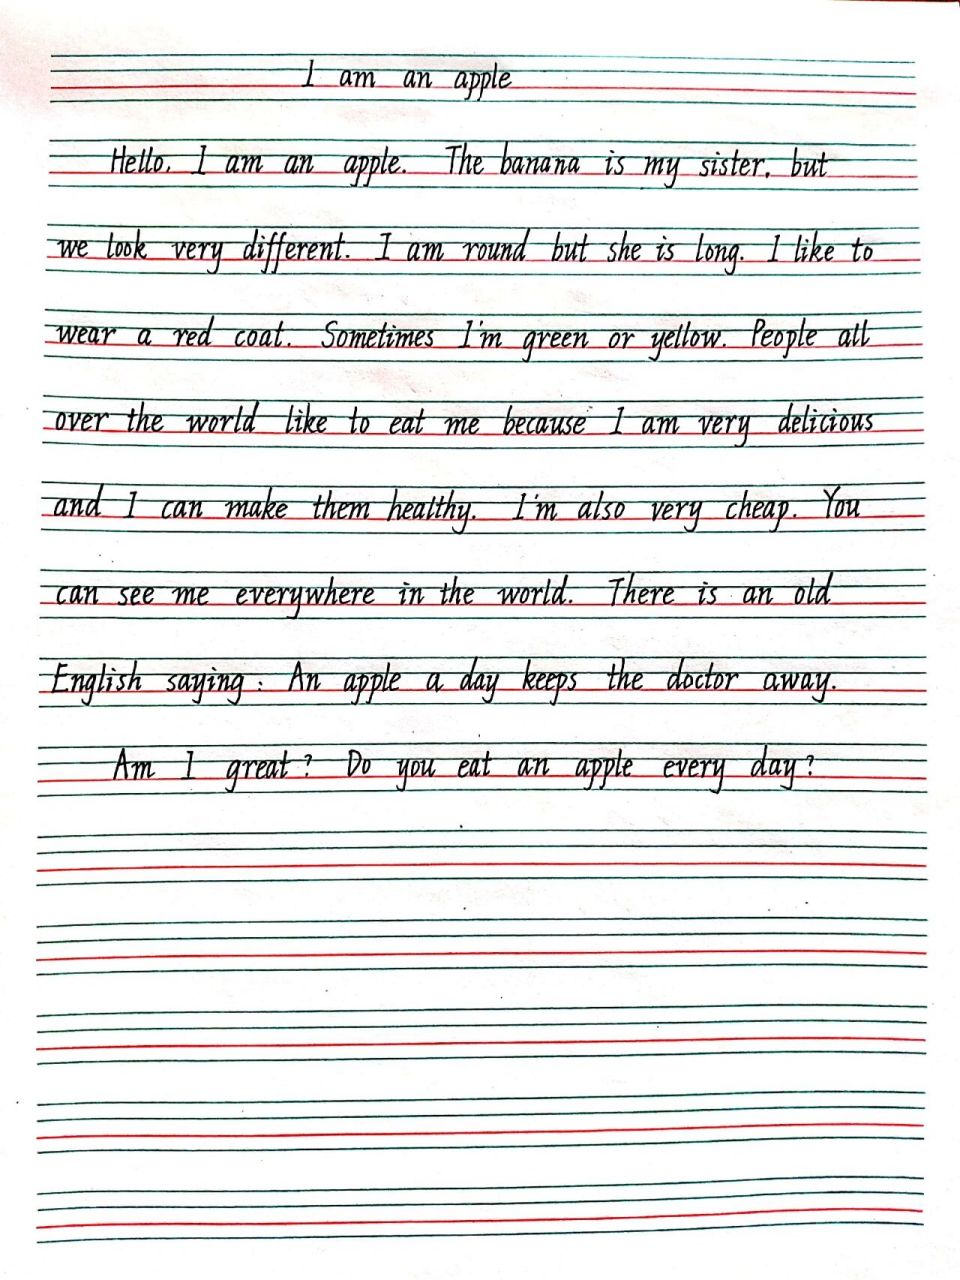 I am an apple
Hello, I am an apple. The banana is my sister, but
we look very different. I am round but she is long. I like to
wear a red coat. Sometimes I'm green or yellow. People all
over the world like to eat me because I am very delicious
and I can make them healthy. I'm also very cheap. You
can see me everywhere in the world. There is an old
English saying: An apple a day keeps the doctor away.
Am I great? Do you eat an apple every day?